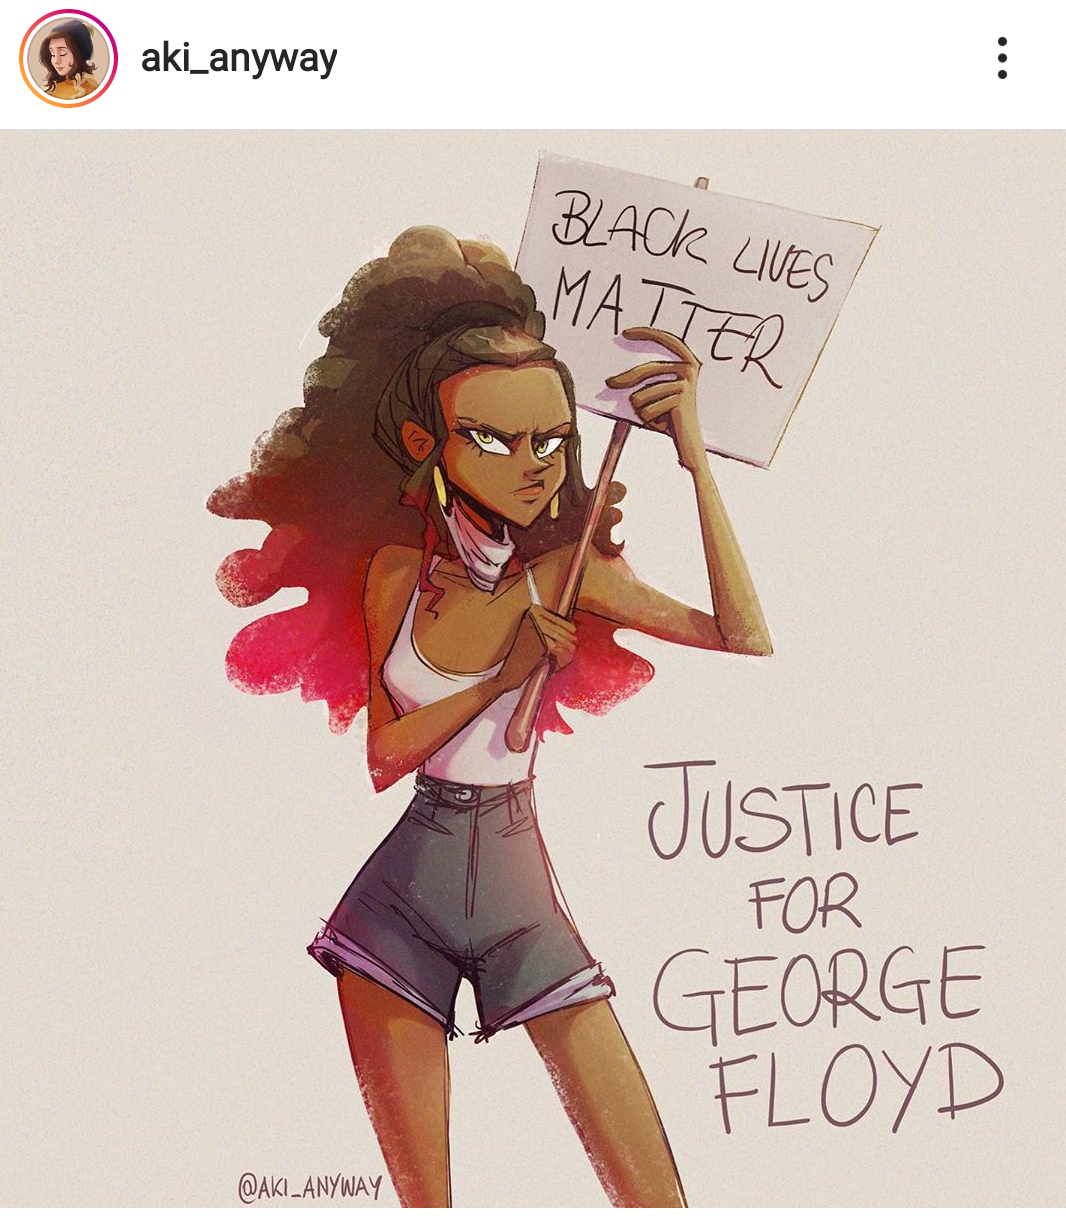 aki_anyway
BLACK LIVES
MATTER
JUSTICE
FOR
GEORGE
FLOYD
@AKI_ANYWAY